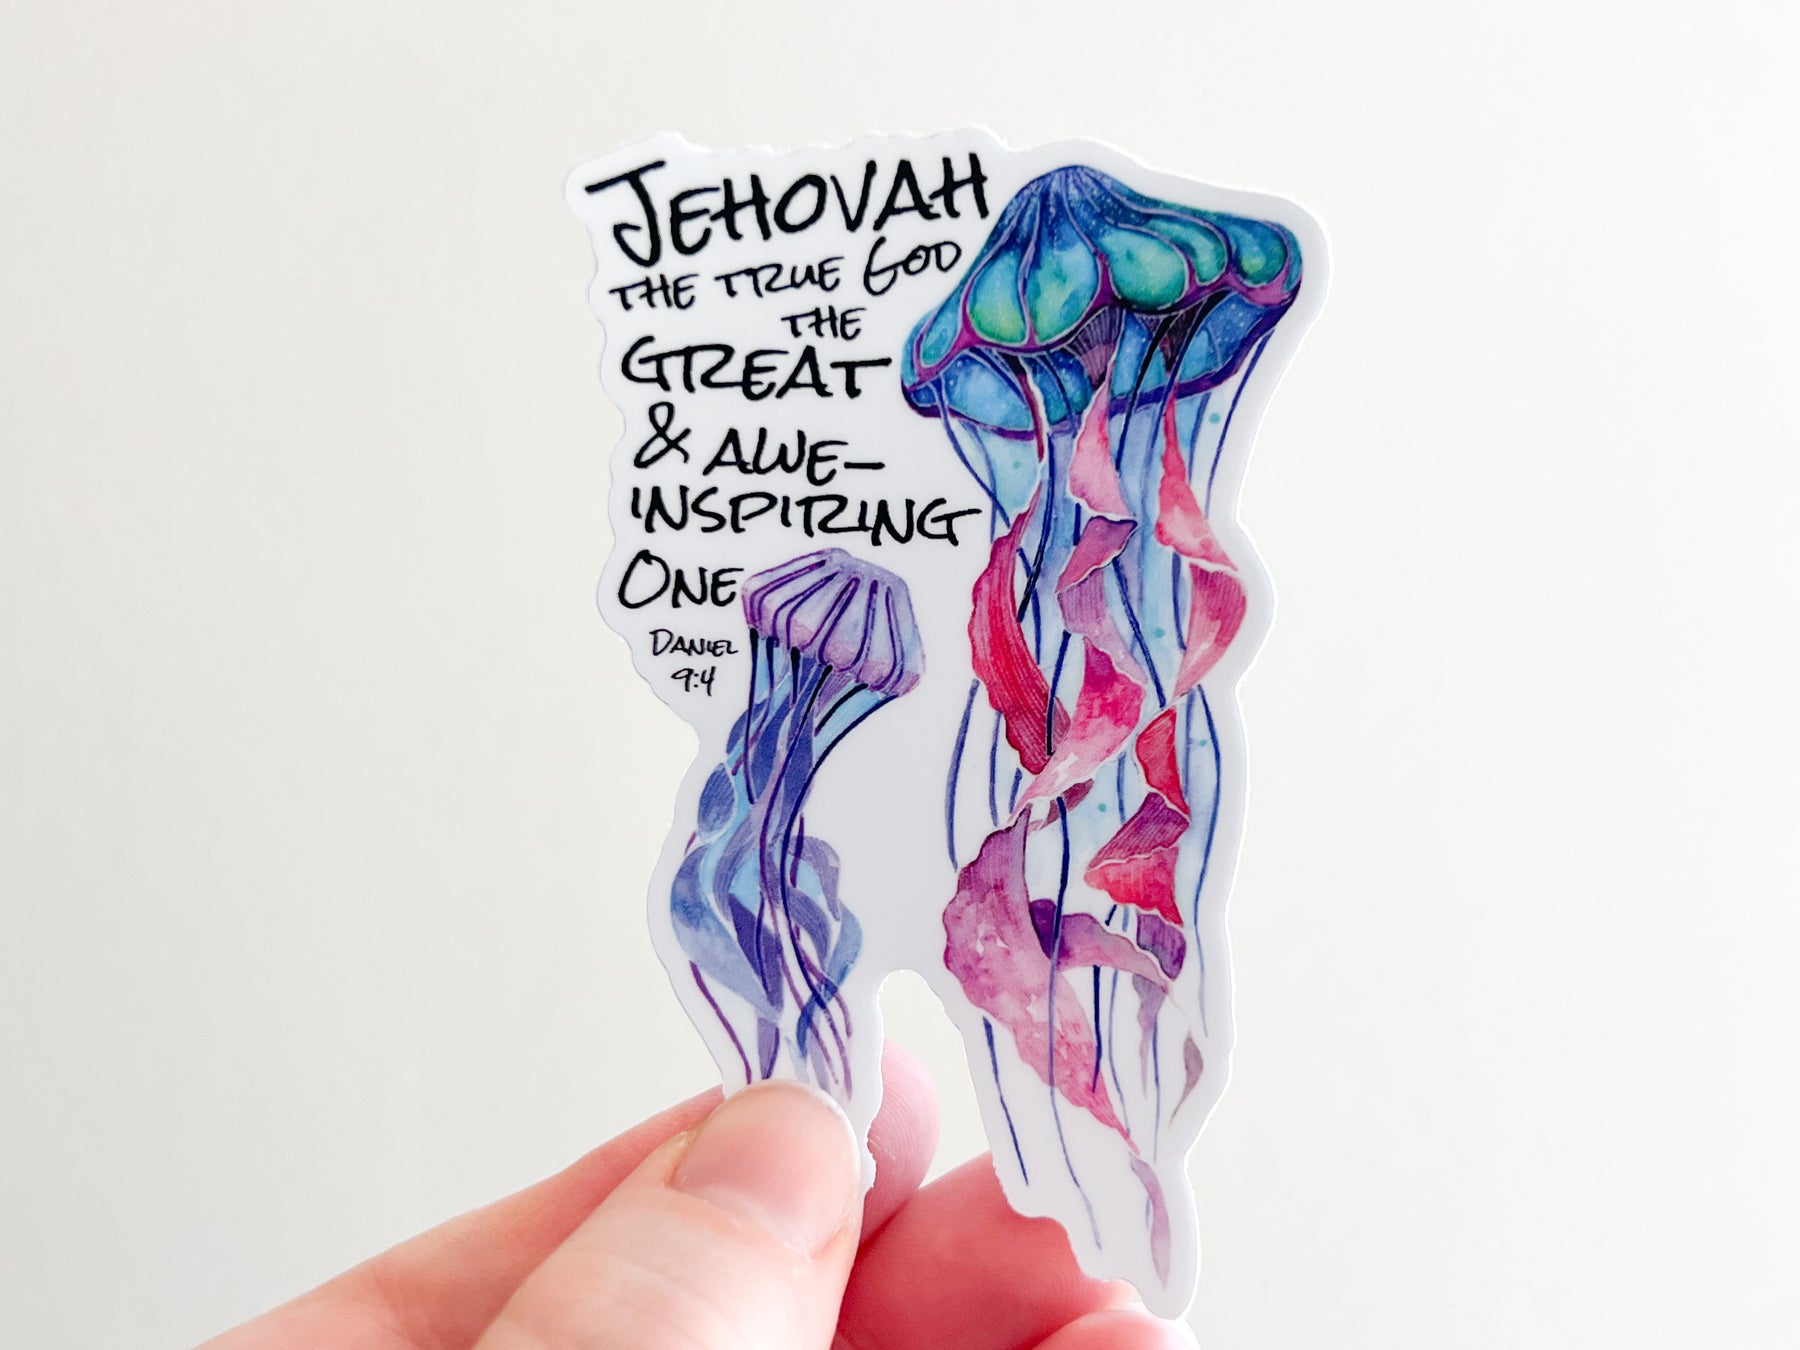 JEHOVAH
THE TRUE GOD
THE
GREAT
& AWE-
INSPIRING
ONE
DANIEL
9:4